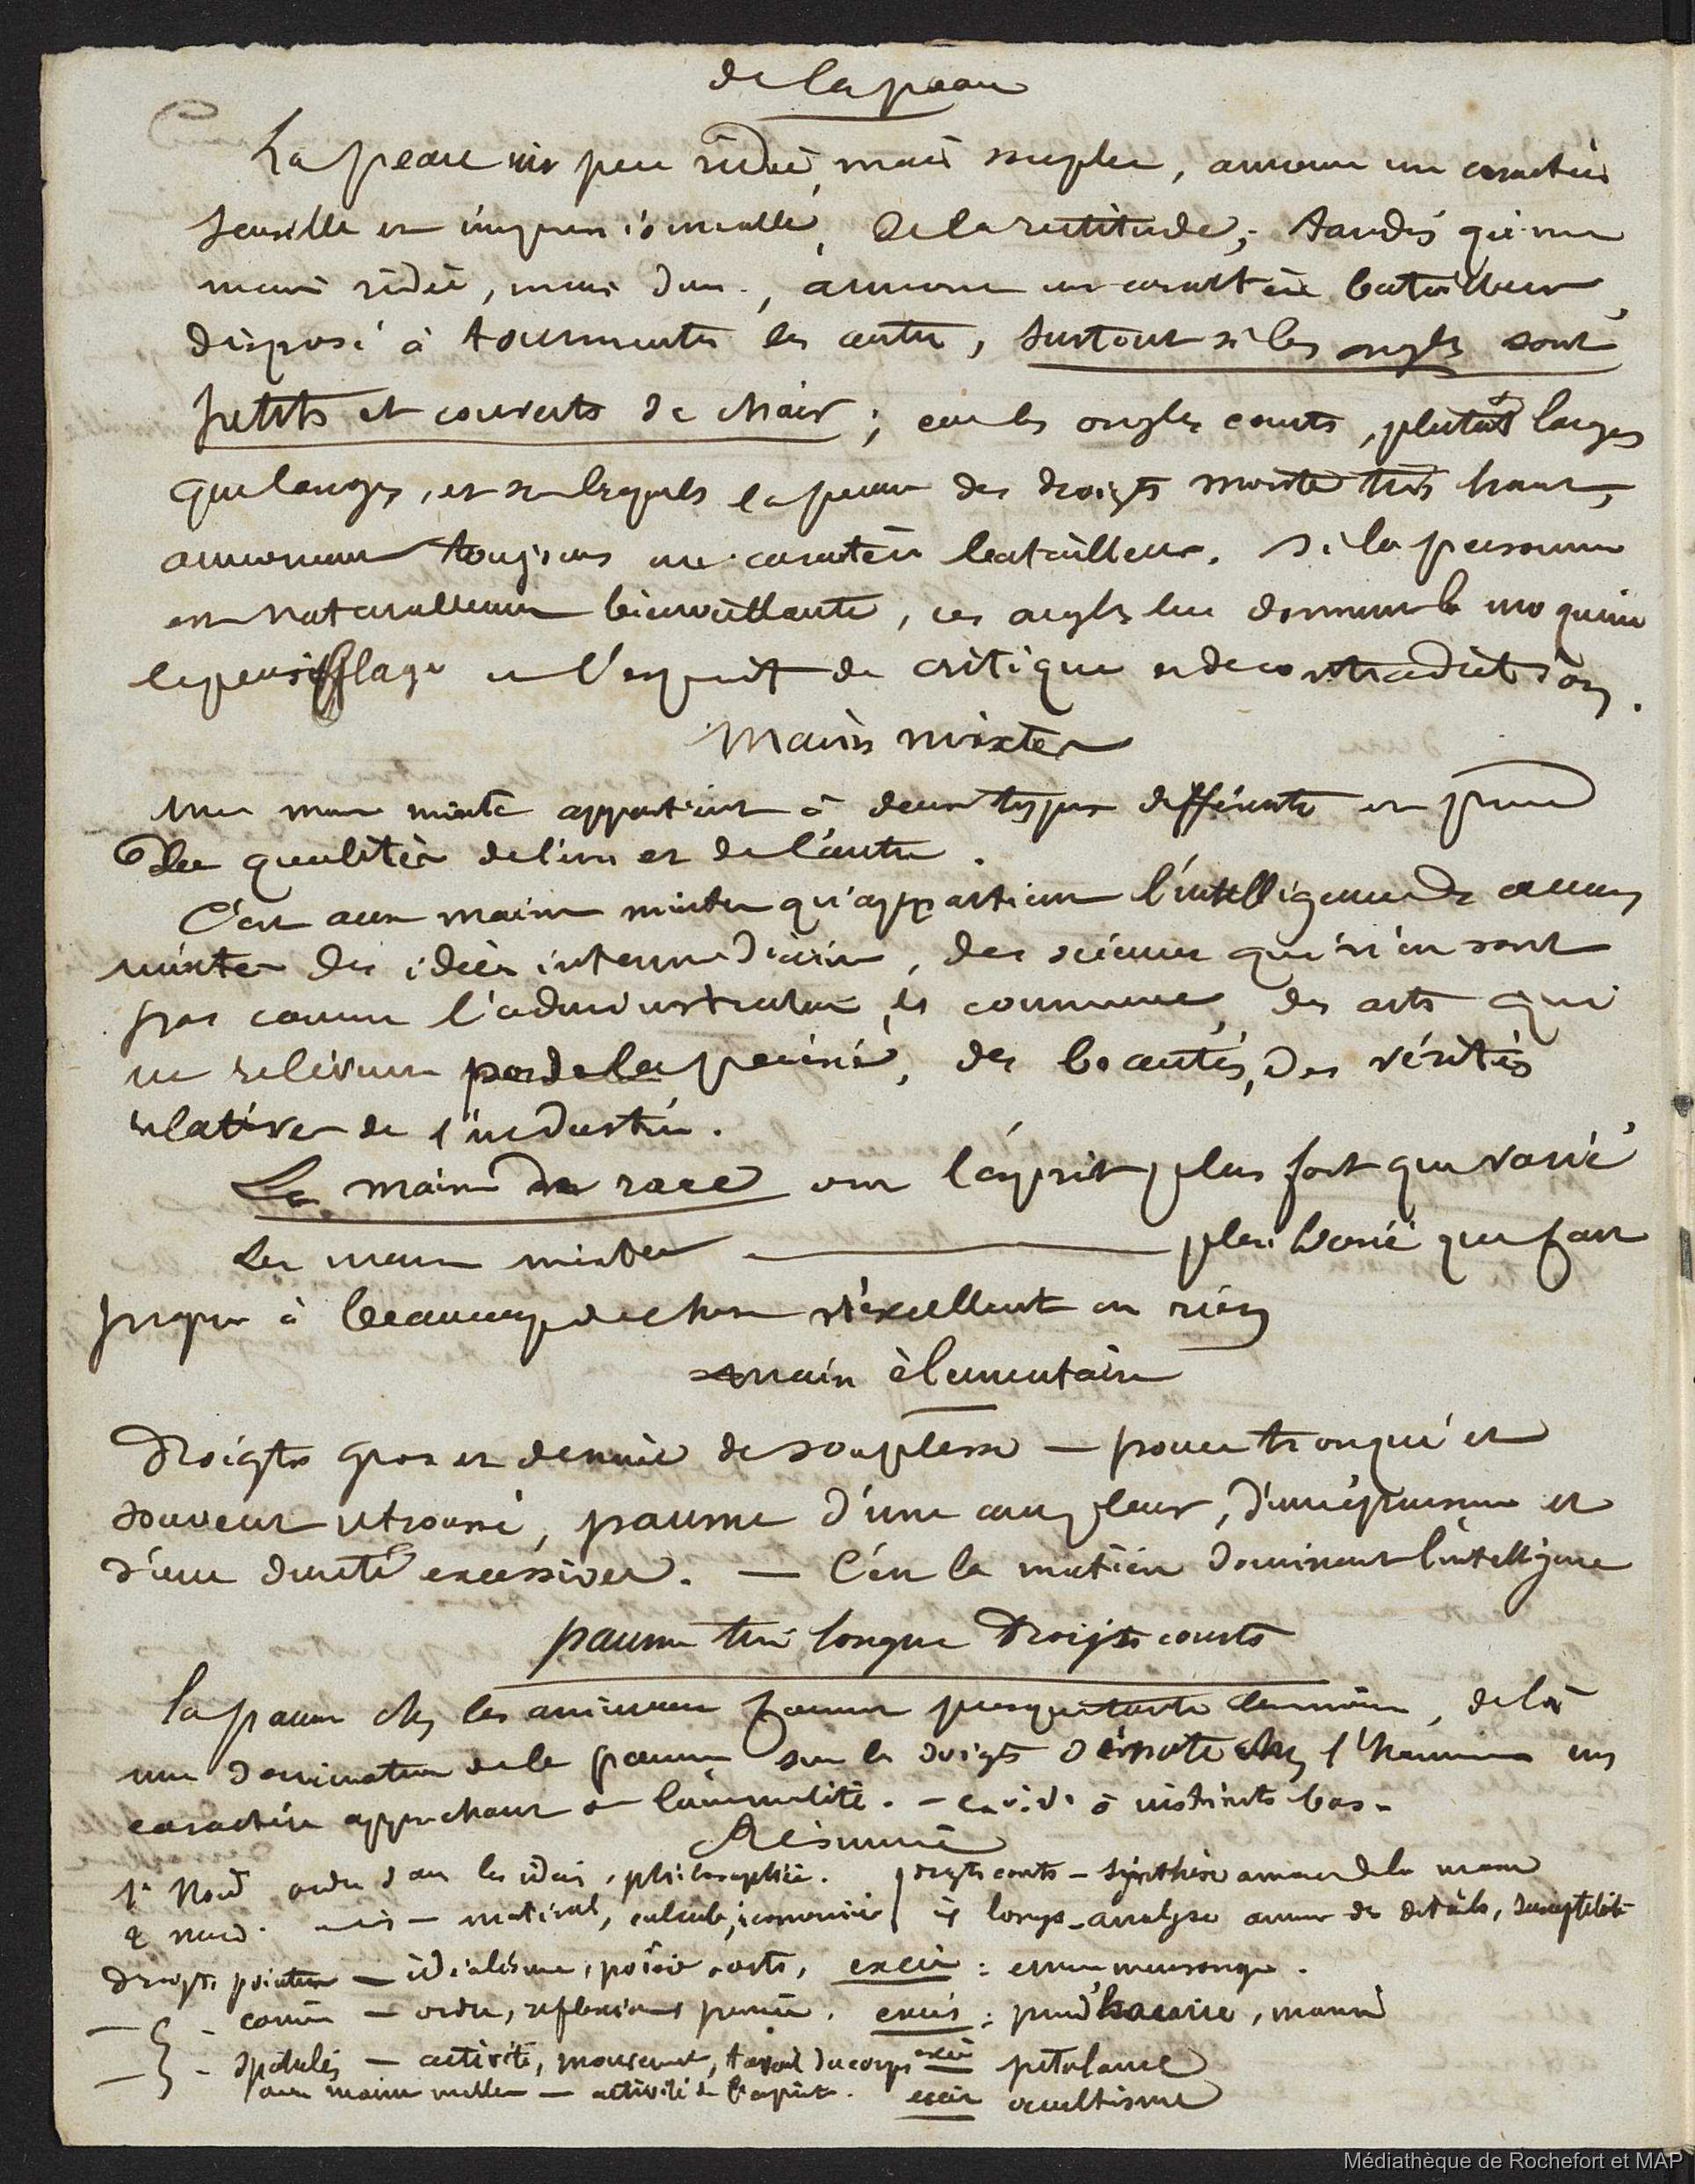 de la peau
La peau un peu ridée, mais souple, annonce un caractère
sensible et impressionnable, de la rectitude; tandis qu'une
main ridée, mais dure, annonce un caractère batailleur,
disposé à tourmenter les autres, surtout si les ongles sont
petits et couverts de chair; car les ongles courts, plutôt larges
que longs, et sur lesquels la peau des doigts monte très haut,
annoncent toujours un caractère batailleur. Si la personne
est naturellement bienveillante, ces ongles lui donnent la moquerie
le persifflage et l'esprit de critique et de contradiction.
Mains mixtes
Une main mixte appartient à deux types différents et prend
des qualités de l'un et de l'autre.
C'est aux mains mixtes qu'appartient l'intelligence des œuvres
mixtes des idées intermédiaires, des sciences qui n'en sont
pas comme l'administration, le commerce, des arts qui
ne relèvent pas de la poésie, des beautés, des vérités
relatives de l'industrie.
Les mains de race ont l'esprit plus fort que varié
Les mains mixtes ——— plus varié que fort
propres à beaucoup de choses n'excellent en rien
main élémentaire
Doigts gros et dénués de souplesse — pouce tronqué et
souvent retroussé, paume d'une ampleur, d'une épaisseur et
d'une dureté excessives. — C'est la matière dominant l'intelligence
paume très longue doigts courts
la paume chez les animaux forme presque toute la main, de là
une domination de la paume sur les doigts dénote chez l'homme un
caractère approchant de l'animalité. - c.à.d. à instincts bas.
Résumé
1er Nœud ordre dans les idées, philosophie. doigts courts — synthèse amour de la masse
2 nœud — matériel, calcul, économie id longs — analyse amour des détails, susceptibilité
doigts pointus — idéalisme, poésie, arts, excès : erreur mensonge.
— carrés — ordre, réflexion, pensée. excès : prud'homie, manie
— spatulés — activité, mouvement, travail du corps excès pétulance
aux mains molles — activité de l'esprit. excès occultisme
Médiathèque de Rochefort et MAP